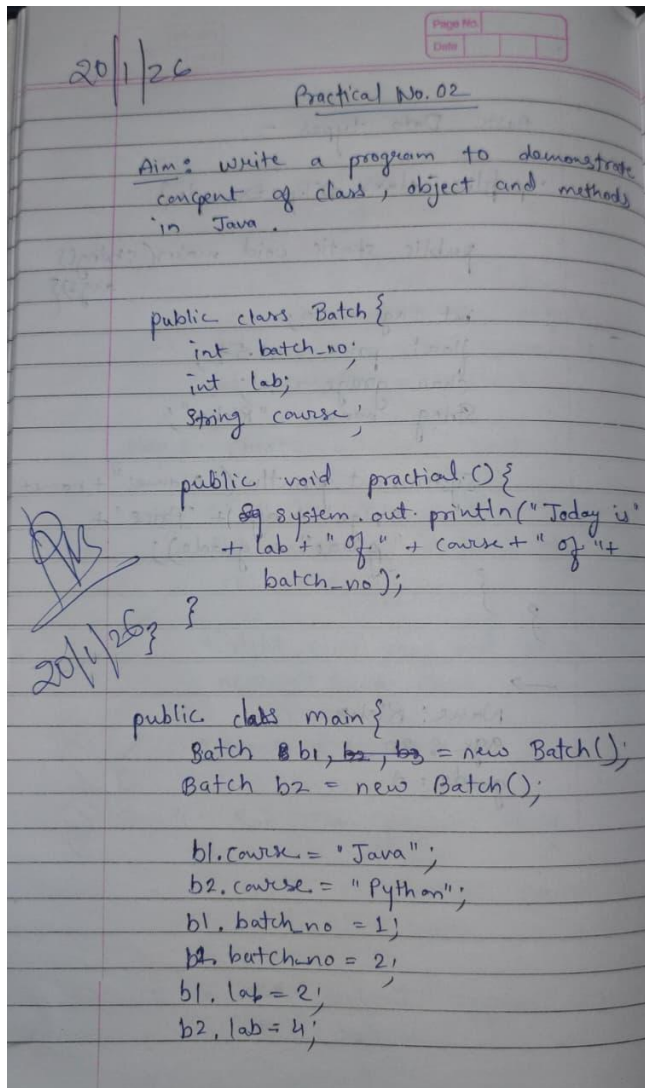 Page No.
Date
20/1/26
Practical No. 02
Aim: Write a program to demonstrate
concpent of class, object and methods
in Java.
public class Batch {
int batch_no;
int lab;
String course;
public void practical () {
system. out. println("Today is"
+ lab + " of " + course + " of "+
batch_no);
}
20/1/26
}
public class main {
Batch b1, b2, b3 = new Batch();
Batch b2 = new Batch();
b1. course = "Java";
b2. course = "Python";
b1. batch_no = 1;
b2. batch_no = 2;
b1. lab = 2;
b2. lab = 4;